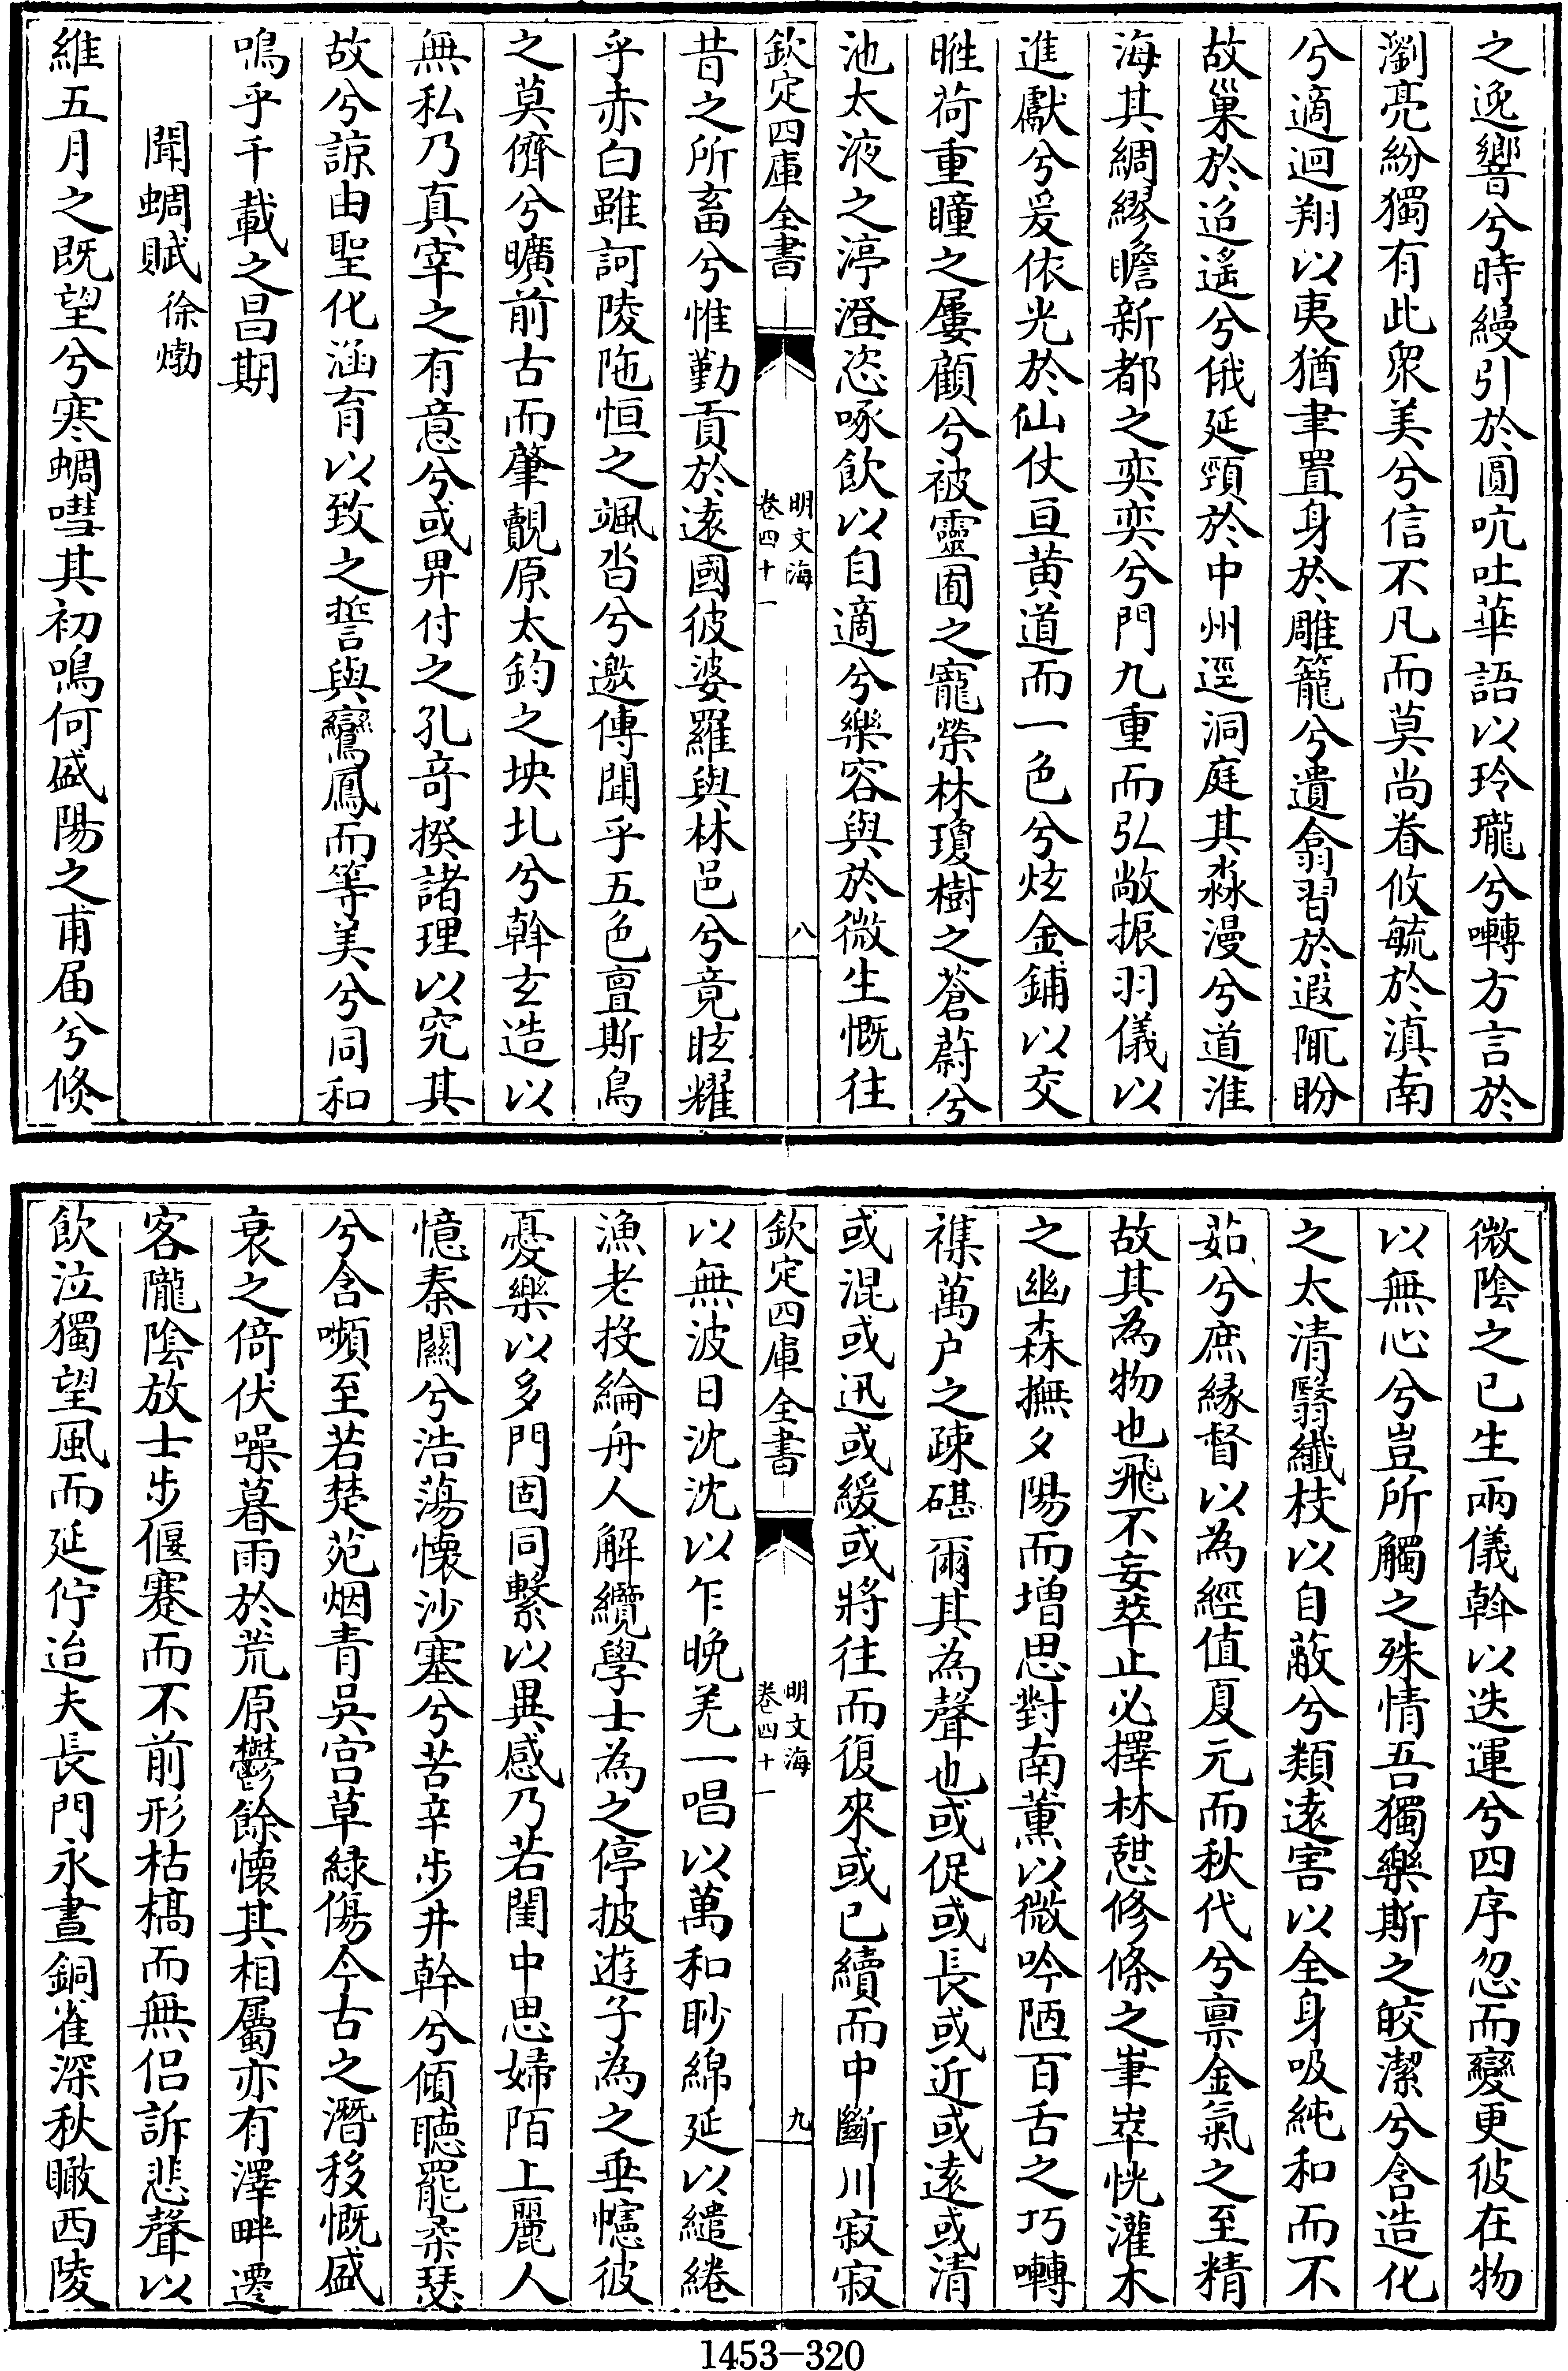 之逸響兮時縵引於圓吭吐華語以玲瓏兮囀方言於
瀏亮紛獨有此衆美兮信不凡而莫尚眷攸毓於滇南
兮適迴翔以夷猶聿置身於雕籠兮遺翕習於遐陬盼
故巢於迢遥兮俄延頸於中州逕洞庭其淼漫兮道淮
海其綢繆瞻新都之奕奕兮門九重而弘敞振羽儀以
進獻兮爰依光於仙仗亘黄道而一色兮炫金鋪以交
暀荷重瞳之屢顧兮被靈囿之寵榮林瓊樹之蒼蔚兮
池太液之渟澄恣啄飲以自適兮樂容與於微生慨往
欽定四庫全書
明文海
卷四十一
八
昔之所畜兮惟勤貢於遠國彼婆羅與林邑兮竟眩耀
乎赤白雖訶陵陁恒之颯沓兮邀傳聞乎五色亶斯鳥
之莫儕兮曠前古而肇覿原太鈞之坱圠兮斡玄造以
無私乃真宰之有意兮或畀付之孔竒揆諸理以究其
故兮諒由聖化涵育以致之誓與鸞鳳而等美兮同和
鳴乎千載之昌期
聞蜩賦 徐𤊹
維五月之既望兮寒蜩嘒其初鳴何盛陽之甫届兮倐
微陰之已生兩儀斡以迭運兮四序忽而變更彼在物
以無心兮豈所觸之殊情吾獨樂斯之皎潔兮含造化
之太清翳纖枝以自蔽兮類遠害以全身吸純和而不
茹兮庶緣督以為經值夏元而秋代兮禀金氣之至精
故其為物也飛不妄萃止必擇林憇修條之崒崒恍灌木
之幽森撫夕陽而增思對南薰以微吟陋百舌之巧囀
襍萬户之疎碪爾其為聲也或促或長或近或遠或清
或混或迅或緩或將往而復來或已續而中斷川寂寂
欽定四庫全書
明文海
卷四十一
九
以無波日沈沈以乍晚羌一唱以萬和眇綿延以繾綣
漁老投綸舟人解纜學士為之停披遊子為之垂幰彼
憂樂以多門固同繫以異感乃若閨中思婦陌上麗人
憶秦關兮浩蕩懷沙塞兮苦辛步井幹兮傾聽罷桑瑟
兮含嚬至若楚苑烟青吳宫草緑傷今古之潛移慨盛
衰之倚伏噪暮雨於荒原鬱餘懷其相屬亦有澤畔遷
客隴陰放士步偃蹇而不前形枯槁而無侣訴悲聲以
飲泣獨望風而延佇迨夫長門永晝銅雀深秋瞰西陵
1453-320